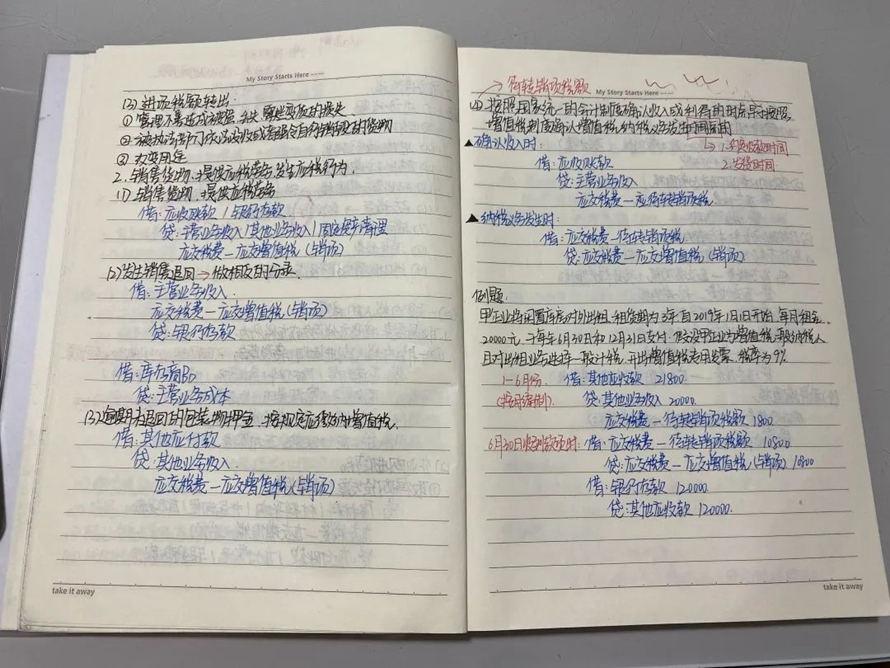 My Story Starts Here
(3) 进项税额转出
① 管理不善造成被盗、丢失、霉烂变质的损失
② 被执法部门依法没收或者强令自行销毁的货物
③ 改变用途
2. 销售货物、提供应税劳务、发生应税行为.
(1) 销售货物、提供应税劳务
借：应收账款 / 银行存款
贷：主营业务收入 / 其他业务收入 / 固定资产清理
应交税费 — 应交增值税 (销项)
(2) 发生销售退回 → 做相反的分录.
借：主营业务收入.
应交税费 — 应交增值税 (销项)
贷：银行存款
借：库存商品
贷：主营业务成本
(3) 逾期未退回的包装物押金，按规定应缴纳增值税.
借：其他应付款
贷：其他业务收入.
应交税费 — 应交增值税 (销项)
take it away
→ 待转销项税额
My Story Starts Here
(4) 按照国家统一的会计制度确认收入或利得的时点早于按照
增值税制度确认增值税纳税义务发生时间的
▲确认收入时：
→ 1.
时间
2. 发票时间
借：应收账款
贷：主营业务收入
应交税费 — 待转销项税
▲纳税义务发生时：
借：应交税费 — 待转销项税
贷：应交税费 — 应交增值税 (销项)
例题：
甲企业将闲置库房对外出租，租赁期为2年，自2019年1月1日开始，每月租金
20000元，于每年6月30日和12月31日支付，假设甲企业为增值税一般纳税人
且对出租业务选择一般计税，开出增值税专用发票，税率为9%
1-6月份 借：其他应收款 21800
贷：其他业务收入 20000
应交税费 — 待转销项税额 1800
6月30日收到款项时：借：应交税费 — 待转销项税额 10800
贷：应交税费 — 应交增值税 (销项) 10800
借：银行存款 120000
贷：其他应收款 120000.
take it away